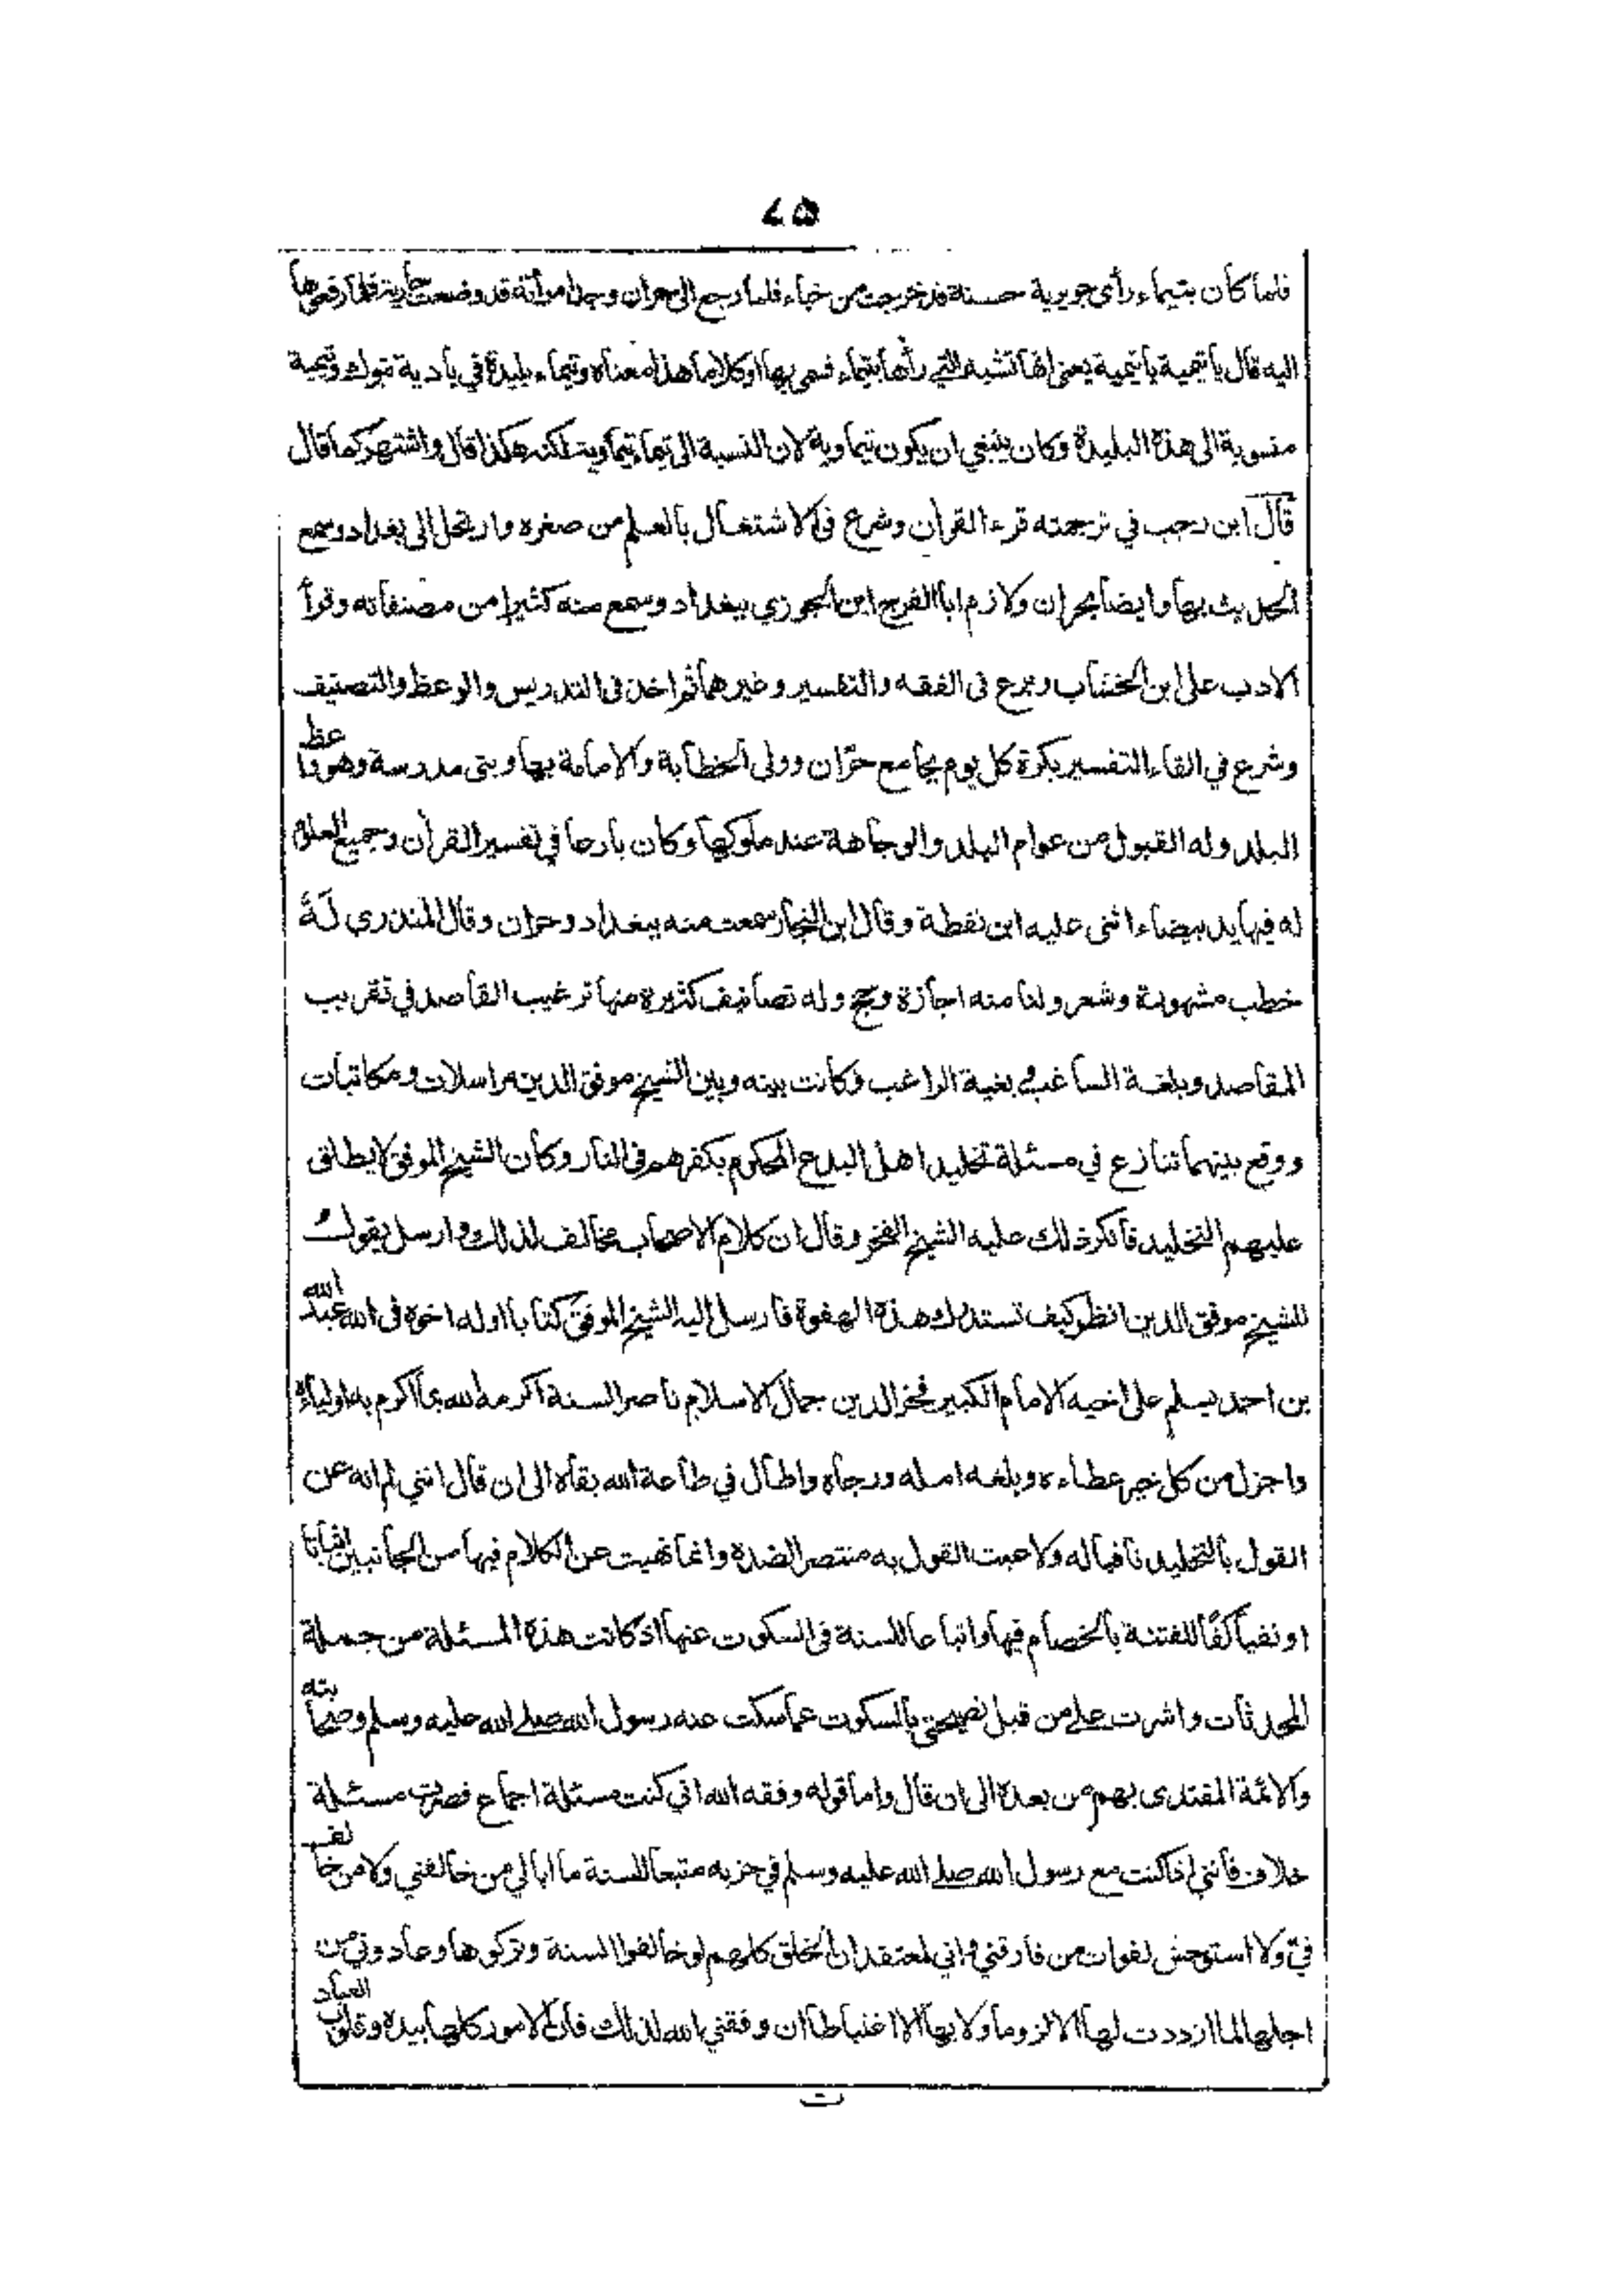 ٤٥
فلما كان بتيماء رأى جويرية حسنة قد خرجت من خباء فلما رجع الى حران وجد امرأته قد وضعت جارية فلما رفعوها
اليه قال ياتيمية ياتيمية يعنى انها تشبه التي رأها بتيماء فسمى بها او كلاما هذا معناه وتيماء بليدة في بادية تبوك وتيمية
منسوبة الى هذه البليدة وكان ينبغي ان يكون تيماوية لان النسبة الى تيماء تيماوية لكنه هكذا قال واشتهر كما قال
قال ابن رجب في ترجمته قرء القرأن وشرع فى الاشتغال بالعلم من صغره وارتحل الى بغداد وسمع
الحديث بها وايضا بحران ولازم ابا الفرج ابن الجوزي ببغداد وسمع منه كثيرا من مصنفاته وقرأ
الادب على ابن الخشاب وبرع فى الفقه والتفسير وغيرهما ثم اخذ فى التدريس والوعظ والتصنيف
وشرع في القاء التفسير بكرة كل يوم بجامع حرّان وولى الخطابة والامامة بها وبنى مدرسة وهو واعظ
البلد وله القبول من عوام البلد والوجاهة عند ملوكها وكان بارعا في تفسير القرأن وجميع العلوم
له فيها يد بيضاء اثنى عليه ابن نقطة وقال ابن النجار سمعت منه ببغداد وحران وقال المنذرى لَهُ
خطب مشهورة وشعر ولنا منه اجازة وحج وله تصانيف كثيرة منها ترغيب القاصد في تقريب
المقاصد وبلغة الساغب في بغية الراغب وكانت بينه وبين الشيخ موفق الدين مراسلات ومكاتبات
ووقع بينهما تنازع في مسئلة تخليد اهل البدع المحكوم بكفرهم فى النار وكان الشيخ الموفق لا يطلق
عليهم التخليد فانكر ذلك عليه الشيخ الفخر وقال ان كلام الاصحاب مخالف لذلك وارسل يقول
للشيخ موفق الدين انظر كيف تستدرك هذه الهفوة فارسل اليه الشيخ الموفق كتابا اوله اخوه فى الله عبد الله
بن احمد يسلم على اخيه الامام الكبير فخر الدين جمال الاسلام ناصر السنة اكرمه الله بما اكرم به اولياءه
واجزل من كل خير عطاءه وبلغه امله ورجاه واطال في طاعة الله بقاه الى ان قال انني لم انه عن
القول بالتخليد نافيا له ولا عبت القول به منتصرا لضده وانما نهيت عن الكلام فيها من الجانبين اثباتا
او نفيا كفًا للفتنة بالخصام فيها واتباعا للسنة فى السكوت عنها اذ كانت هذه المسئلة من جملة
المحدثات واشرت على من قبل نصيحتي بالسكوت عما سكت عنه رسول الله صلى الله عليه وسلم وصحابته
والائمة المقتدى بهم من بعده الى ان قال واما قوله وفقه الله اني كنت مسئلة اجماع فصرت مسئلة
خلاف فانني اذا كنت مع رسول الله صلى الله عليه وسلم في حزبه متبعا للسنة ما ابالي من خالفني ولا من خالف
فيّ ولا استوحش لفوات من فارقني واني لمعتقد ان الخلق كلهم لو خالفوا السنة وتركوها وعادوني من
اجلها لما ازددت لها الا لزوما ولا بها الا اغتباطا ان وفقني الله لذلك فان الامور كلها بيده وقلوب العباد